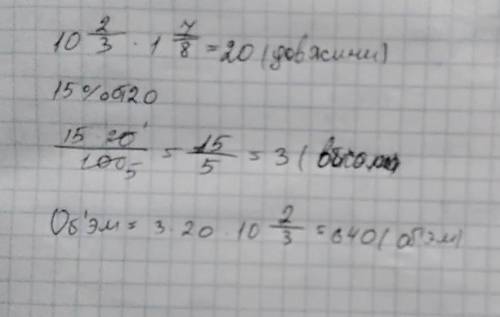 10 2/3 · 1 7/8 = 20 (довжини)
15% от 20
15 20 1 / 100 5 = 15/5 = 3 (
Об'эм = 3 · 20 · 10 2/3 = 640 (об'эм)